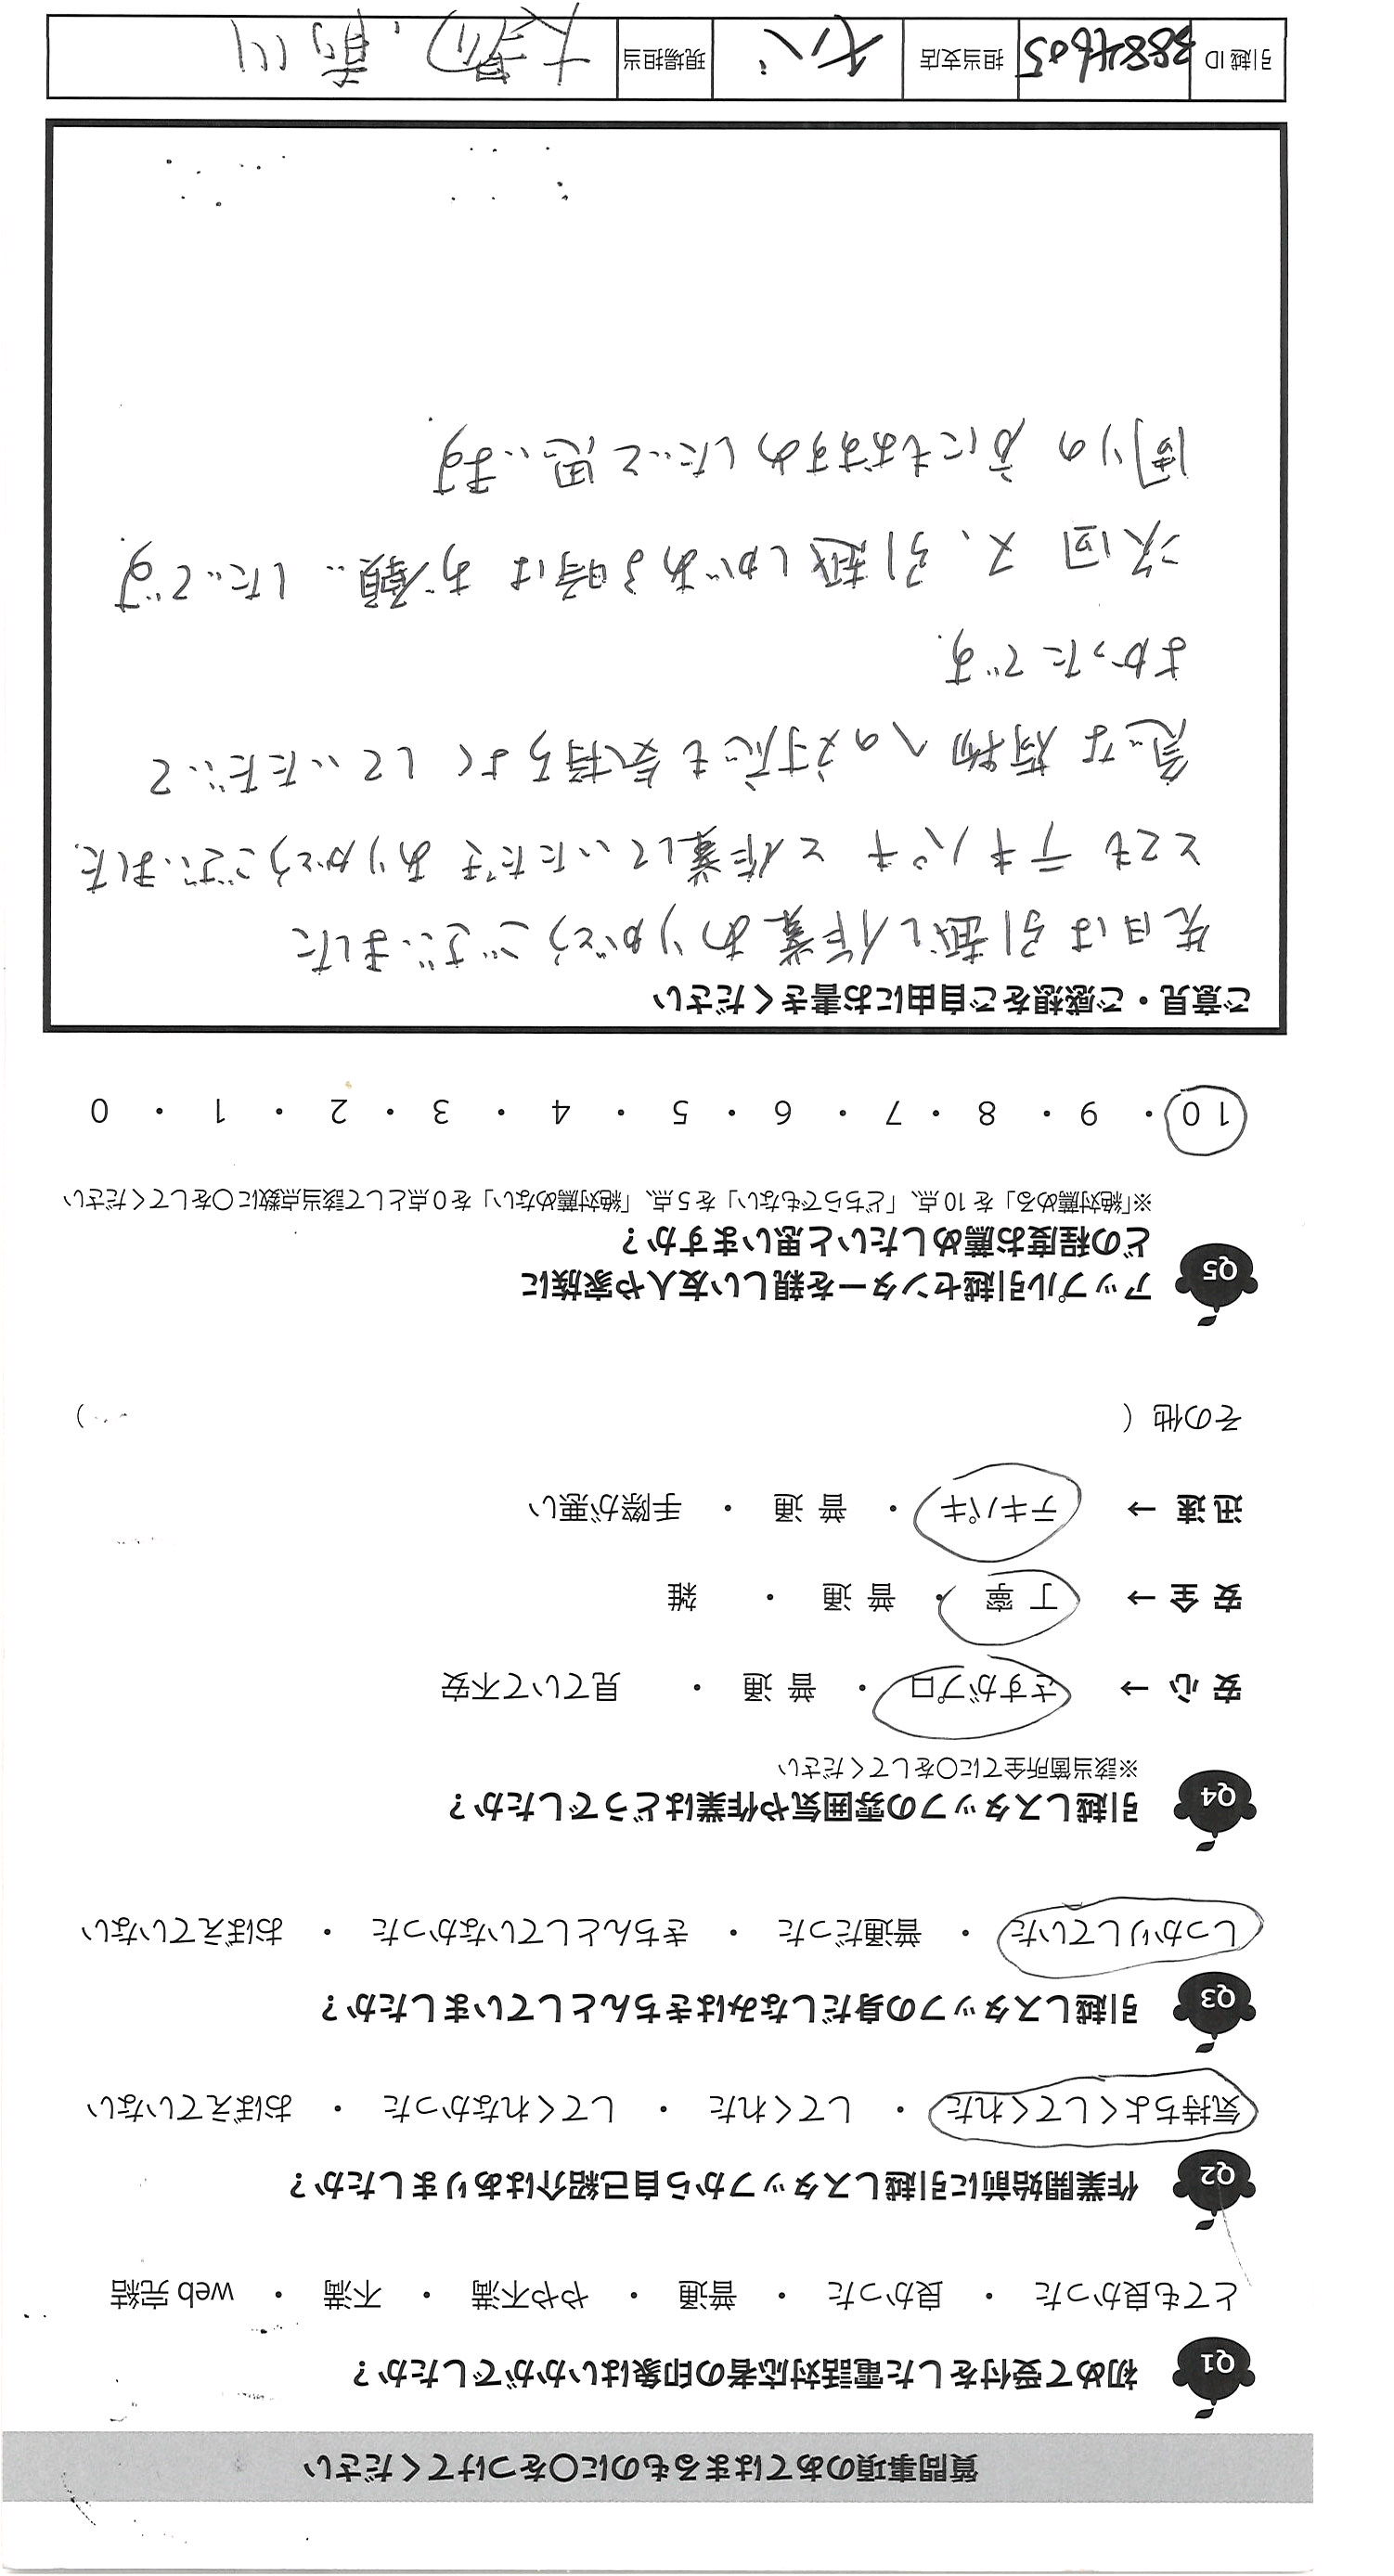 質問事項のあてはまるものに〇をつけてください
Q1 初めて受付をした電話対応者の印象はいかがでしたか？
とても良かった ・ 良かった ・ 普通 ・ やや不満 ・ 不満 ・ web 完結
Q2 作業開始前に引越しスタッフから自己紹介はありましたか？
気持ちよくしてくれた ・ してくれた ・ してくれなかった ・ おぼえていない
Q3 引越しスタッフの身だしなみはきちんとしていましたか？
しっかりしていた ・ 普通だった ・ きちんとしていなかった ・ おぼえていない
Q4 引越しスタッフの雰囲気や作業はどうでしたか？
※該当箇所全てに〇をしてください
安心 → さすがプロ ・ 普通 ・ 見ていて不安
安全 → 丁寧 ・ 普通 ・ 雑
迅速 → テキパキ ・ 普通 ・ 手際が悪い
その他（ ）
Q5 アップル引越センターを親しい友人や家族に
どの程度お薦めしたいと思いますか？
※「絶対薦める」を 10 点、「どちらでもない」を 5 点、「絶対薦めない」を 0 点として該当点数に〇をしてください
10 ・ 9 ・ 8 ・ 7 ・ 6 ・ 5 ・ 4 ・ 3 ・ 2 ・ 1 ・ 0
ご意見・ご感想をご自由にお書きください
先日は引越し作業ありがとうございました
とてもテキパキと作業していただきありがとうございました.
急な荷物への対応も気持ちよくしていただいて
よかったです.
次回又、引越しがある時はお願いしたいです.
周りの方にもおすすめしたいと思います.
引越 ID 3884605 担当支店 チバ 現場担当